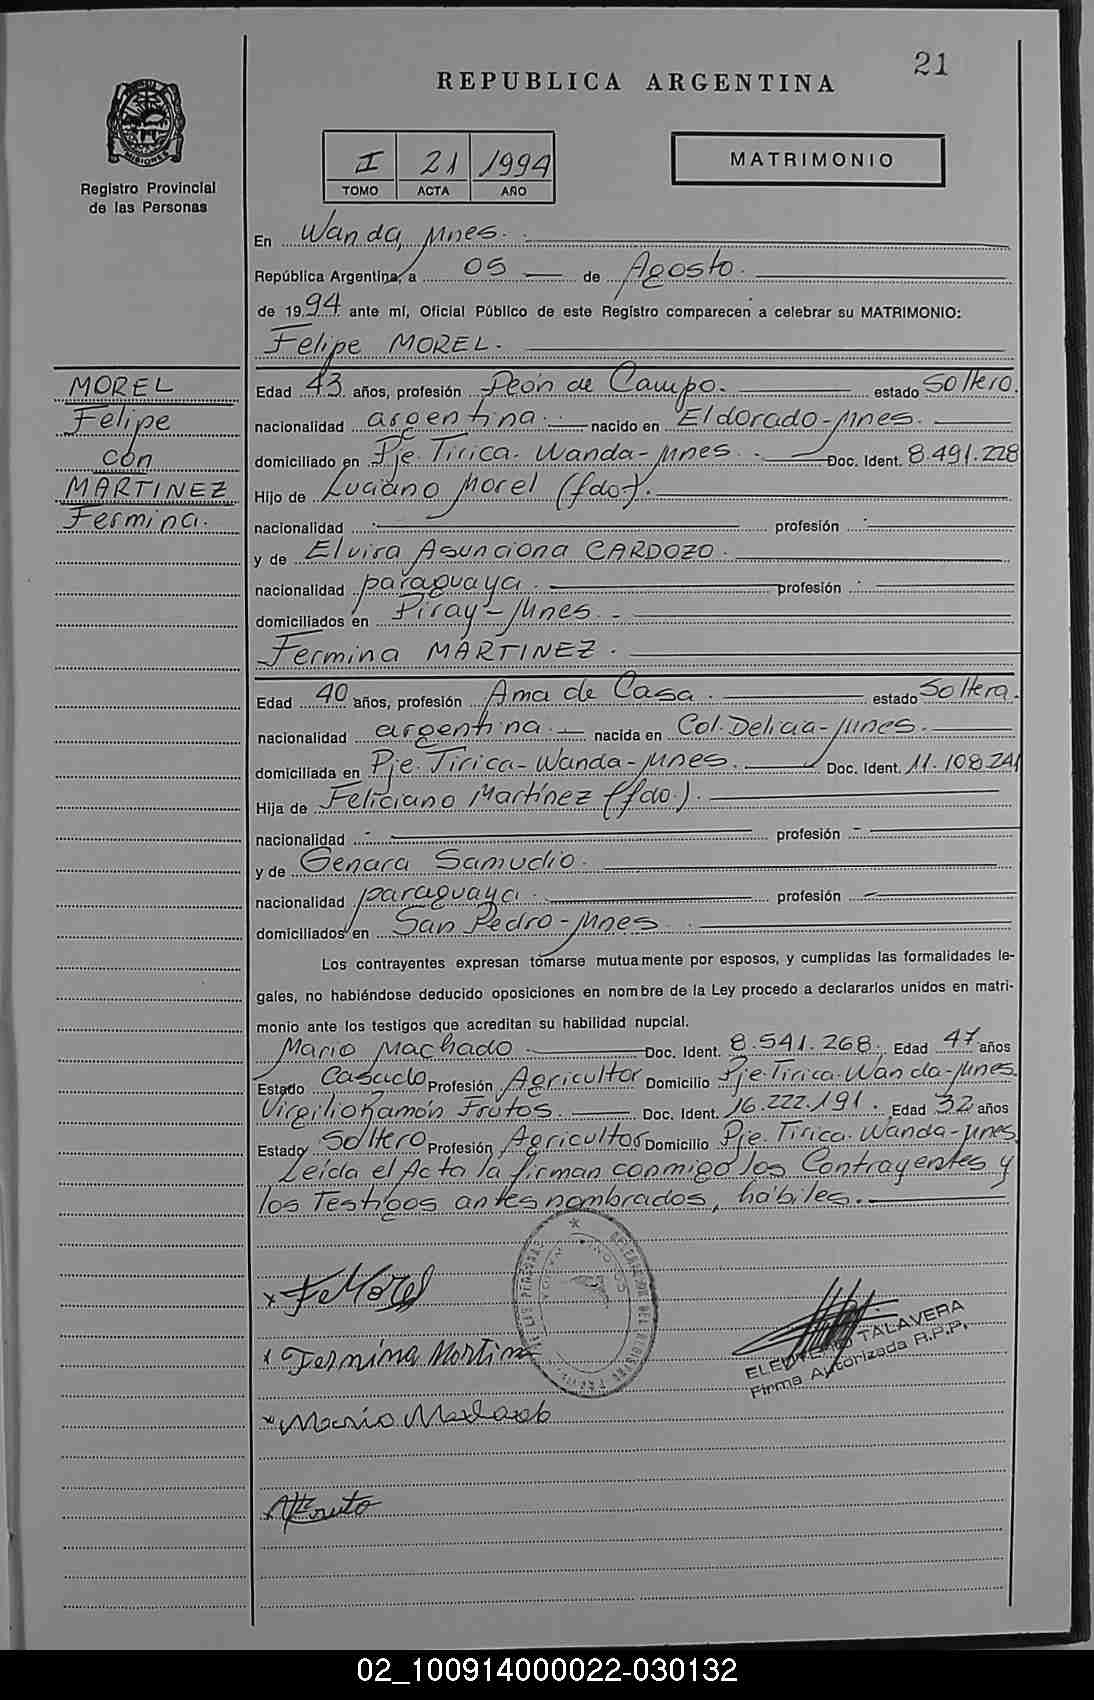 21
REPUBLICA ARGENTINA
MISIONES
Registro Provincial
de las Personas
I 21 1994
TOMO ACTA AÑO
MATRIMONIO
En Wanda, Mnes.
República Argentina, a 05 de Agosto.
de 1994 ante mí, Oficial Público de este Registro comparecen a celebrar su MATRIMONIO:
Felipe MOREL.
MOREL
Felipe
con
MARTINEZ
Fermina.
Edad 43 años, profesión Peón de Campo. estado Soltero.
nacionalidad argentina. nacido en Eldorado-Mnes.
domiciliado en Pje. Tirica. Wanda-Mnes. Doc. Ident. 8.491.228
Hijo de Luciano Morel (fdo).
nacionalidad profesión
y de Elvira Asunciona CARDOZO.
nacionalidad paraguaya. profesión
domiciliados en Piray-Mnes.
Fermina MARTINEZ.
Edad 40 años, profesión Ama de Casa. estado Soltera.
nacionalidad argentina. nacida en Col. Delicia-Mnes.
domiciliada en Pje. Tirica-Wanda-Mnes. Doc. Ident. 11.108.241
Hija de Feliciano Martínez (fdo.).
nacionalidad profesión
y de Genara Samudio.
nacionalidad paraguaya. profesión
domiciliados en San Pedro-Mnes.
Los contrayentes expresan tomarse mutuamente por esposos, y cumplidas las formalidades le-
gales, no habiéndose deducido oposiciones en nombre de la Ley procedo a declararlos unidos en matri-
monio ante los testigos que acreditan su habilidad nupcial.
Mario Machado Doc. Ident. 8.541.268. Edad 47 años
Estado Casado Profesión Agricultor Domicilio Pje. Tirica. Wanda-Mnes.
Virgilio Ramón Frutos. Doc. Ident. 16.222.191. Edad 32 años
Estado Soltero Profesión Agricultor Domicilio Pje. Tirica. Wanda-Mnes.
Leída el Acta la firman conmigo los Contrayentes y
los Testigos antes nombrados, hábiles.
x F Morel
x Fermina Martin
x Mario Machado
ELEUTERIO TALAVERA
Firma Autorizada R.P.P.
02_100914000022-030132